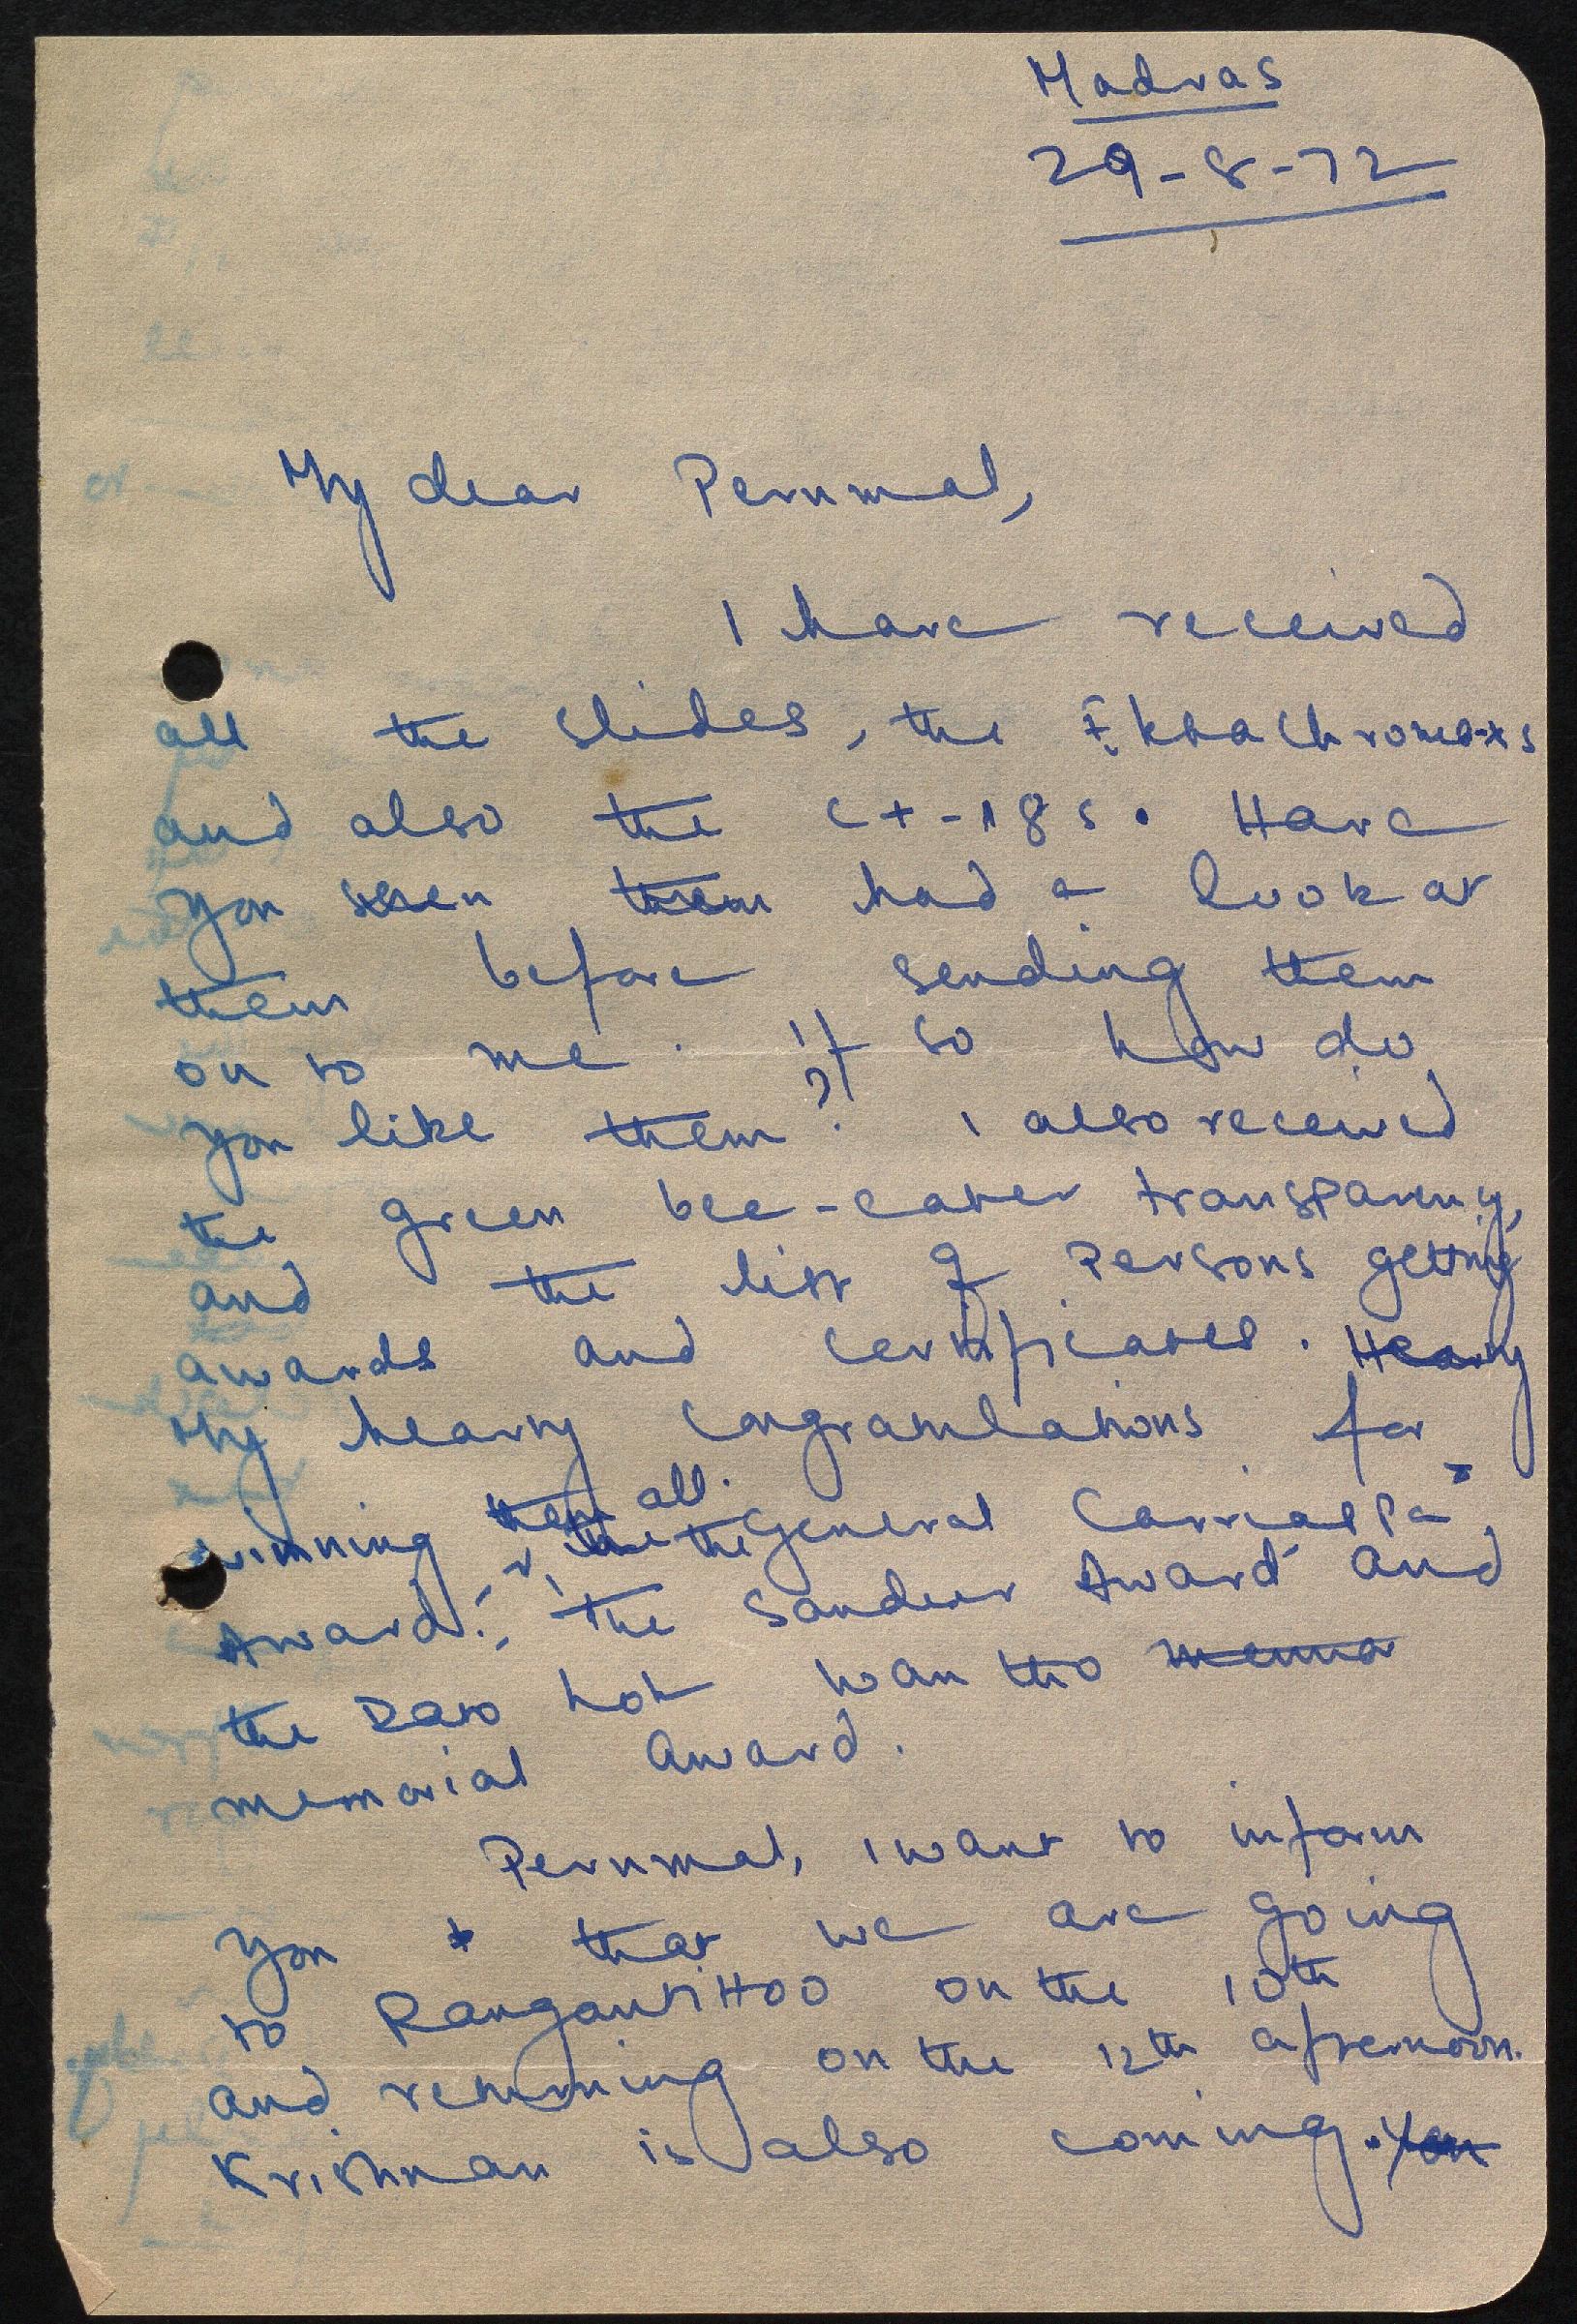 Madras
29-8-72
My dear Perumal,
I have received
all the slides, the Ektachromes
and also the CT-18s. Have
you seen them had a look at
them before sending them
on to me. If so how do
you like them? I also received
the green bee-eater transparency,
and the list of persons getting
awards and certificates. Hearty
My hearty congratulations for
winning them all. the General Carriappa
Award, The Sandeur Award and
the Rao hot wan tho
memorial Award.
Perumal, I want to inform
you that we are going
to Ranganthittoo on the 10th
and returning on the 12th afternoon.
Krishnan is also coming. You